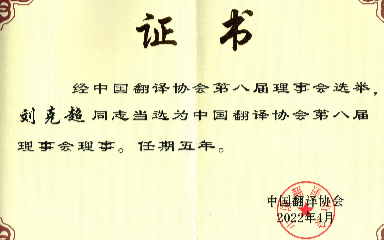 证书
经中国翻译协会第八届理事会选举，
刘克超同志当选为中国翻译协会第八届
理事会理事。任期五年。
中国翻译协会
2022年4月